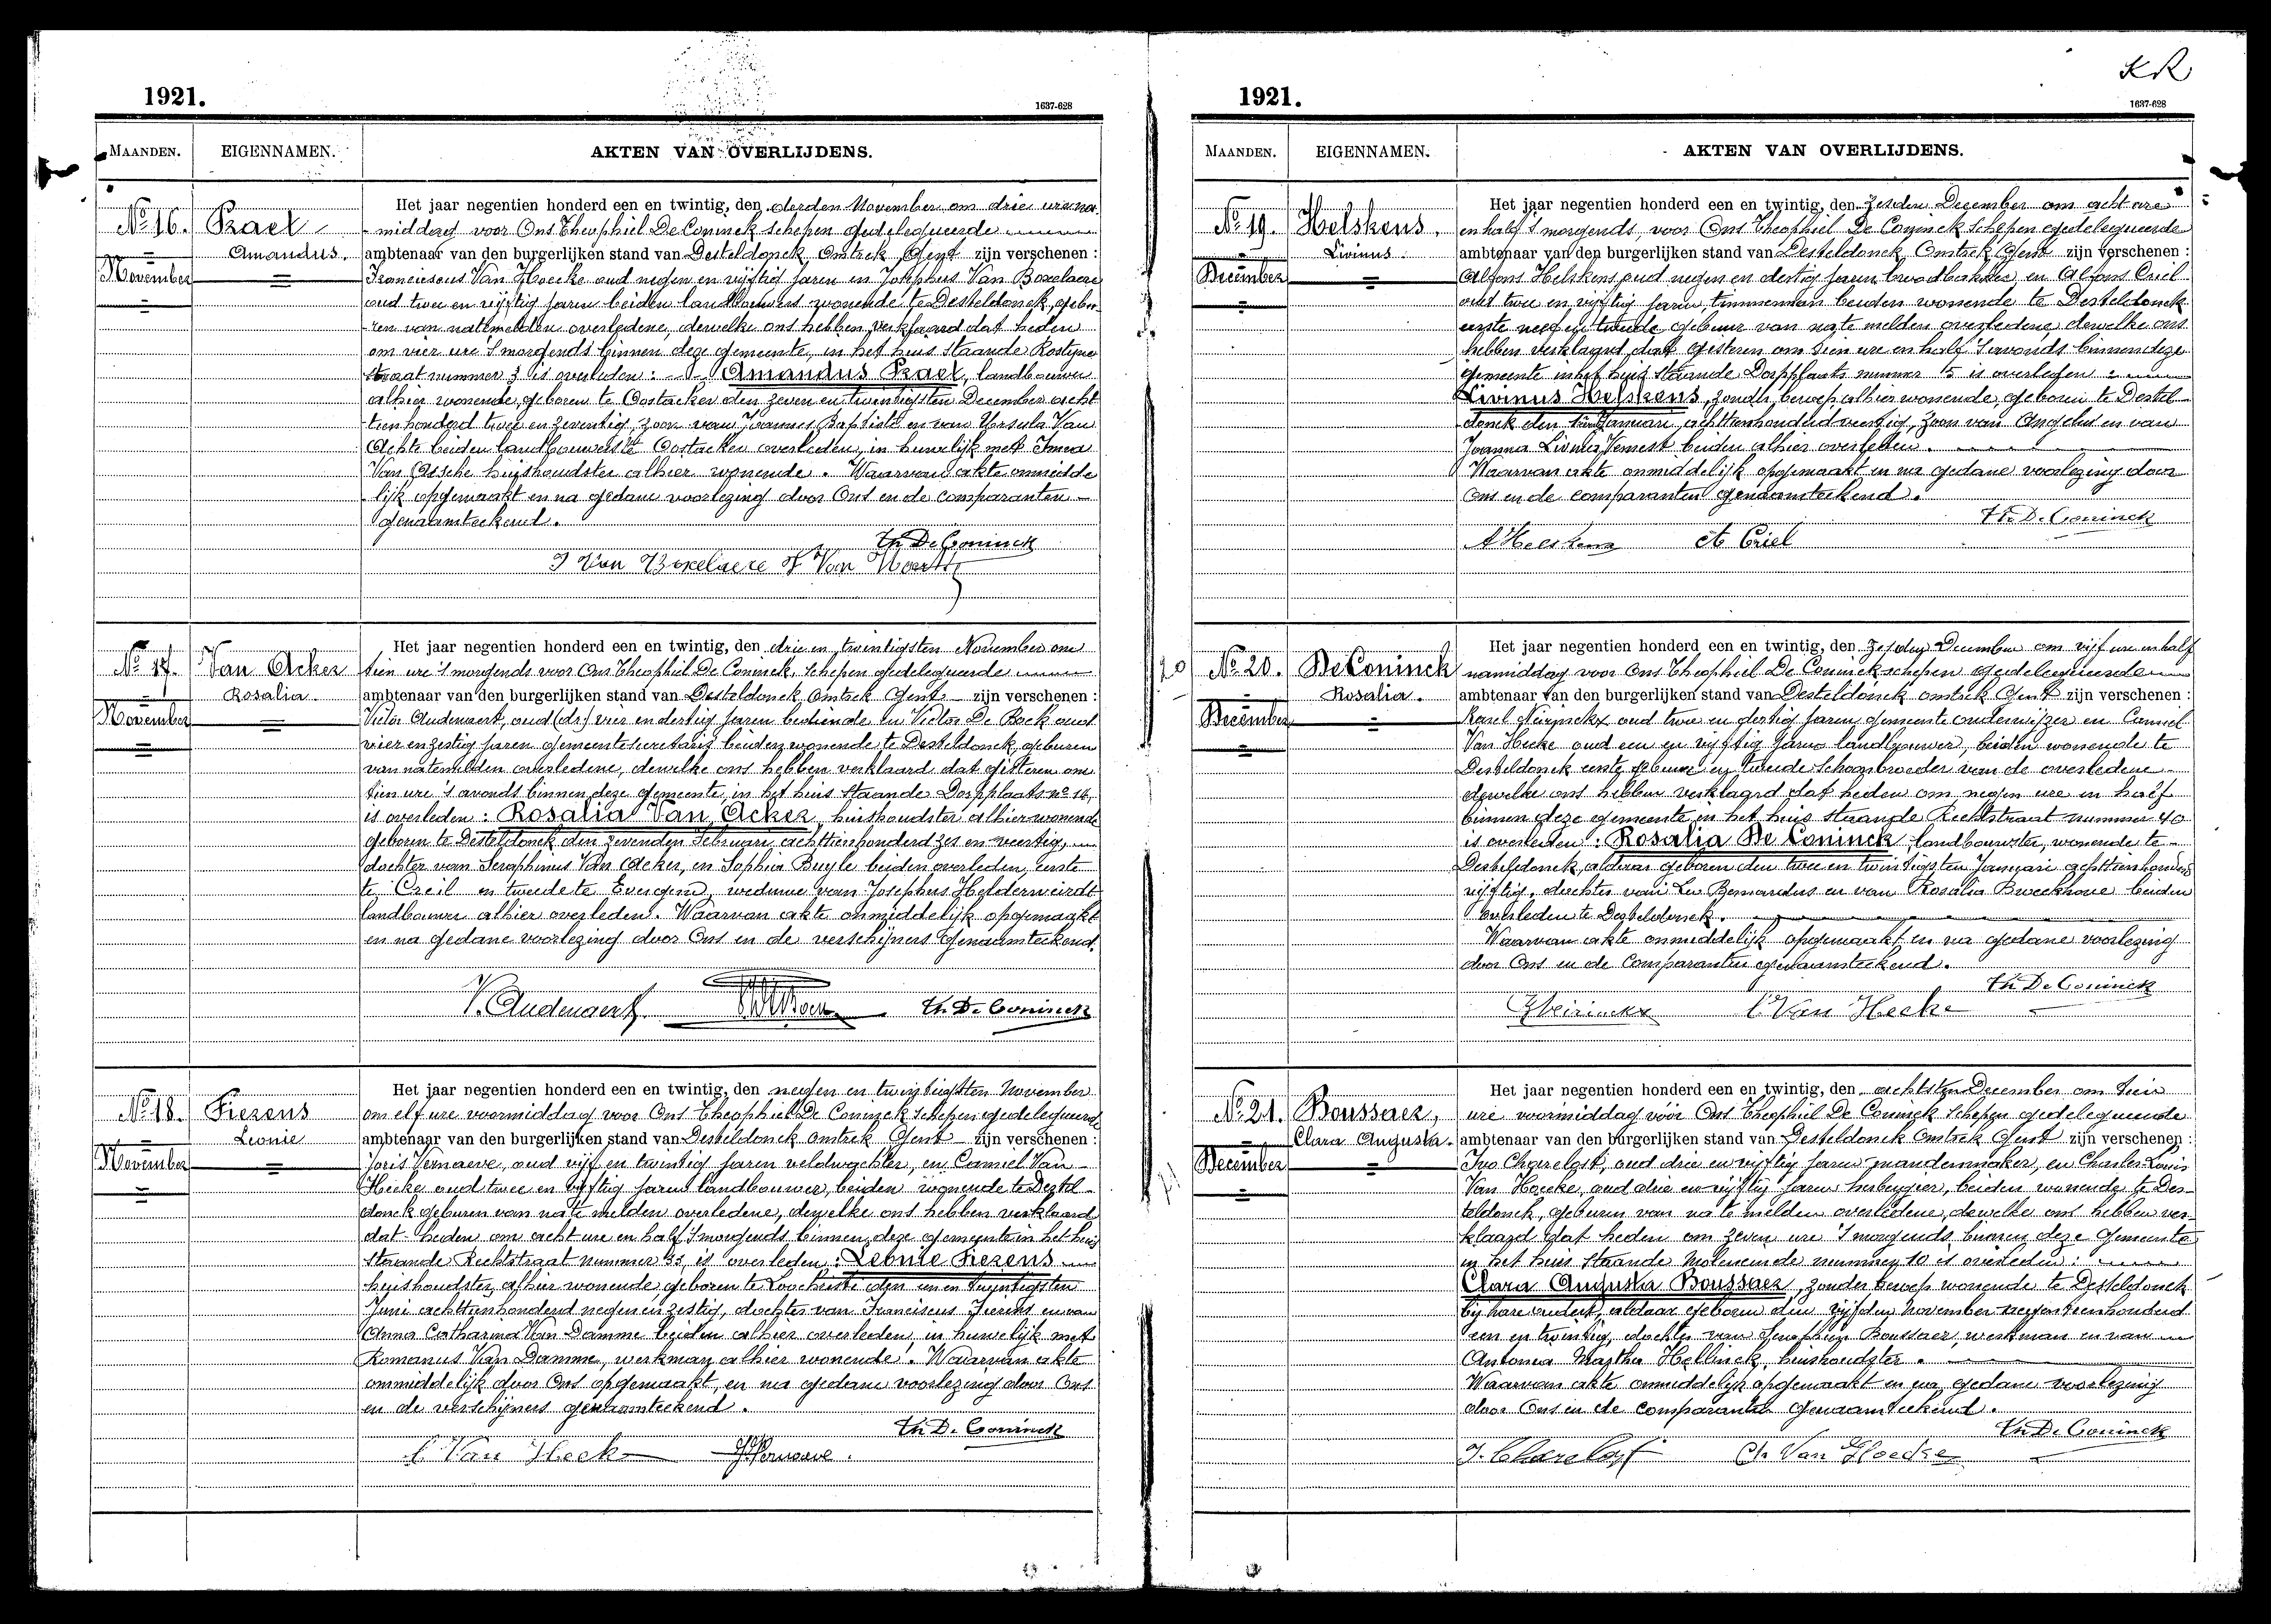 1921.
1637-628
MAANDEN.
EIGENNAMEN.
AKTEN VAN OVERLIJDENS.
No 16.
Prael
Amandus.
November
Het jaar negentien honderd een en twintig, den derden November om drie ure na-
middag voor Ons Theophiel De Coninck Schepen gedelegueerde
ambtenaar van den burgerlijken stand van Desteldonck, Omtrek Gent zijn verschenen :
Franciscus Van Hoecke oud negen en vijftig jaren en Josephus Van Boxelaere
oud twee en vijftig jaren beiden landbouwers wonende te Desteldonck, gebu-
ren van natemelden overledene, dewelke ons hebben verklaard dat heden
om vier ure 's morgends binnen deze gemeente, in het huis staande Rostyne
straat nummer 3 is overleden : Amandus Prael, landbouwer
alhier wonende, geboren te Oostacker den zeven en twintigsten December acht
tienhonderd twee en zeventig, zoon van Joannes Baptiste en van Ursula Van
Achte beiden landbouwers te Oostacker overleden, in huwelijk met Irma
Van Assche huishoudster alhier wonende. Waarvan akte onmidde
lijk opgemaakt en na gedane voorlezing door Ons en de comparanten
genaamteekend.
Th. De Coninck
J Van Boxelaere F Van Hoecke
No 17.
Van Acker
Rosalia.
November
Het jaar negentien honderd een en twintig, den drie en twintigsten November om
tien ure 's morgends voor Ons Theophiel De Coninck, Schepen gedelegueerde
ambtenaar van den burgerlijken stand van Desteldonck Omtrek Gent zijn verschenen :
Victor Audenaert, oud (ds) vier en dertig jaren bediende en Victor De Bock oud
vier en zestig jaren gemeentesecretaris beiden wonende te Desteldonck, geburen
van natemelden overledene, dewelke ons hebben verklaard dat gisteren om
tien ure 's avonds binnen deze gemeente, in het huis staande Dorpplaats no 16,
is overleden : Rosalia Van Acker, huishoudster alhier wonende
geboren te Desteldonck den zevenden Februari achttienhonderd zes en veertig,
dochter van Seraphinus Van Acker, en Sophia Buyle beiden overleden, eerste
te Creil en tweede te Evergem, weduwe van Josephus Helderweirdt
landbouwer alhier overleden. Waarvan akte onmiddelijk opgemaakt
en na gedane voorlezing door Ons en de verschijners genaamteekend.
V. Audenaert
Th. De Coninck
No 18.
Fiezens
Leonie
November
Het jaar negentien honderd een en twintig, den negen en twintigsten November
om elf ure voormiddag voor Ons Theophiel De Coninck Schepen gedelegueerde
ambtenaar van den burgerlijken stand van Desteldonck omtrek Gent zijn verschenen :
Joris Vernaeve, oud vijf en twintig jaren veldwachter, en Camiel Van
Hecke oud twee en vijftig jaren landbouwer, beiden wonende te Destel-
donck geburen van na te melden overledene, dewelke ons hebben verklaard
dat heden om acht ure en half 's morgends binnen deze gemeente in het huis
staande Rechtstraat nummer 33, is overleden : Leonie Fiezens
huishoudster, alhier wonende geboren te Loochristi den een en twintigsten
Juni achttienhonderd negen en zestig, dochter van Franciscus Fierens en van
Anna Catharina Van Damme beiden alhier overleden, in huwelijk met
Romanus Van Damme, werkman alhier wonende. Waarvan akte
onmiddelijk door Ons opgemaakt, en na gedane voorlezing door Ons
en de verschijners genaamteekend.
Th. De Coninck
C Van Hecke
J. Vernaeve.
KR
1921.
1637-628
MAANDEN.
EIGENNAMEN.
AKTEN VAN OVERLIJDENS.
No 19.
Helskens,
Livinus.
December
Het jaar negentien honderd een en twintig, den zesden December om acht ure
en half 's morgends, voor Ons Theophiel De Coninck Schepen gedelegueerde
ambtenaar van den burgerlijken stand van Desteldonck, Omtrek Gent zijn verschenen :
Alfons Helskens oud negen en dertig jaren broodbakker, en Alfons Criel
oud twee en vijftig jaren, timmerman beiden wonende te Desteldonck
eerste neef en tweede gebuur van na te melden overledene, dewelke ons
hebben verklaard dat gisteren om tien ure en half 's avonds binnen deze
gemeente in het huis staande Dorpplaats nummer 15 is overleden :
Livinus Helskens, zonder beroep, alhier wonende, geboren te Destel
donck den Januari achttienhonderd veertig, zoon van Angelus en van
Joanna Livinia Vernest beiden alhier overleden.
Waarvan akte onmiddelijk opgemaakt en na gedane voorlezing door
Ons en de comparanten genaamteekend.
Th. De Coninck
A Helskens
A Criel
20
No 20.
De Coninck
Rosalia.
December
Het jaar negentien honderd een en twintig, den zesden December om vijf ure en half
namiddag voor Ons Theophiel De Coninck schepen gedelegueerde
ambtenaar van den burgerlijken stand van Desteldonck omtrek Gent zijn verschenen :
Karel Neirinckx oud twee en dertig jaren gemeente onderwijzer en Camiel
Van Hecke oud een en vijftig jaren landbouwer, beiden wonende te
Desteldonck eerste gebuur en tweede schoonbroeder van de overledene
dewelke ons hebben verklaard dat heden om negen ure en half
binnen deze gemeente in het huis staande Rechtstraat nummer 40
is overleden : Rosalia De Coninck landbouwster, wonende te
Desteldonck, aldaar geboren den twee en twintigsten Januari achttienhonderd
vijftig, dochter van Leo Bernardus en van Rosalia Broeckhove beiden
overleden te Desteldonck.
Waarvan akte onmiddelijk opgemaakt en na gedane voorlezing
door Ons en de comparanten genaamteekend.
Th. De Coninck
Neirinckx
C Van Hecke
No 21.
Boussaer,
Clara Augusta.
December
Het jaar negentien honderd een en twintig, den achtsten December om tien
ure voormiddag voor Ons Theophiel De Coninck Schepen gedelegueerde
ambtenaar van den burgerlijken stand van Desteldonck Omtrek Gent zijn verschenen :
Ivo Charelost, oud drie en vijftig jaren mandenmaker, en Charles Louis
Van Hoecke, oud drie en vijftig jaren herbergier, beiden wonende te Des-
teldonck, geburen van na te melden overledene, dewelke ons hebben ver-
klaard dat heden om zeven ure 's morgends binnen deze gemeente
in het huis staande Moleneinde nummer 10 is overleden :
Clara Augusta Boussaer, zonder beroep wonende te Desteldonck
bij hare ouders, aldaar geboren den vijfden November negentienhonderd
een en twintig, dochter van Seraphin Boussaer, werkman en van
Antonia Martha Hellinck, huishoudster.
Waarvan akte onmiddelijk opgemaakt en na gedane voorlezing
door Ons en de comparanten genaamteekend.
Th. De Coninck
I. Charelost
Ch Van Hoecke